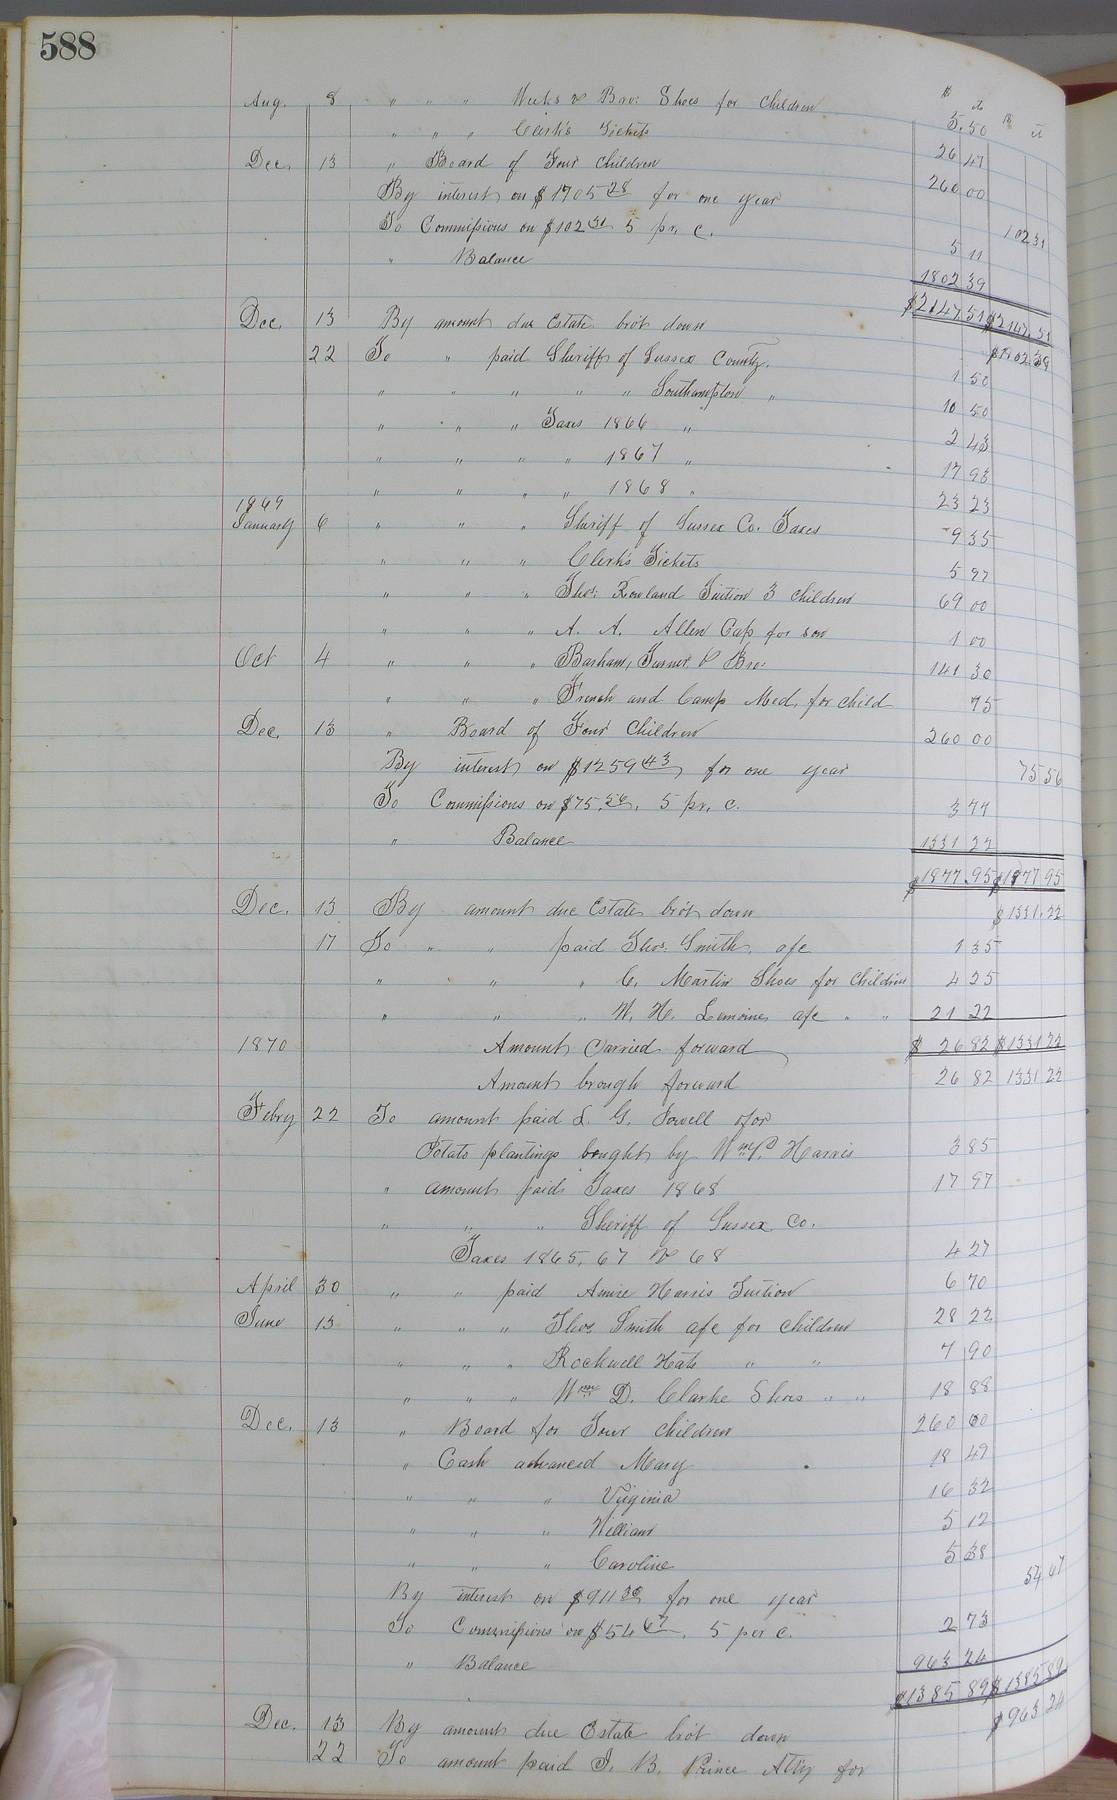 588
$ cts $ ct
Aug. 8 " " " Weeks & Bro: Shoes for Children 5.50
" " " Clerk's Tickets 26 47
Dec. 13 " Board of Four Children 260 00
By interest on $1705 28 for one year 102 31
To Commissions on $102 31 5 pr. c. 5 11
" Balance 1802 39
$2147 51 $2147 51
Dec. 13 By amount due Estate brot down $1802 39
22 To " paid Sheriff of Sussex County. 1 50
" " " " " Southampton " 10 50
" " " Taxes 1866 " 2 43
" " " " 1867 " 17 93
" " " " 1868 " 23 23
1869
January 6 " " " Sheriff of Sussex Co. Taxes 9 35
" " " Clerk's Tickets 5 97
" " " Thos: Rowland Tuition 3 Children 69 00
" " " A. A. Allen Cap for son 1 00
Oct 4 " " " Barham, Turner & Bro: 141 30
" " " French and Camp Med. for Child 75
Dec. 13 " Board of Four Children 260 00
By interest on $1259 43 for one year 75 56
To Commissions on $75.56. 5 pr. c. 3 77
" Balance 1331 22
$1877.95 $1877 95
Dec. 13 By amount due Estate brot down $1331.22
17 To " " paid Thos. Smith a/c 1 35
" " " C. Martin Shoes for Children 4 25
" " " W. H. Lemoine a/c " " 21 22
1870 Amount Carried forward $ 26 82 $1331 22
Amount brough forward 26 82 1331 22
Febry 22 To amount paid L. G. Sowell for
Potato plantings bought by Wm P. Harris 3 85
" amount paid Taxes 1868 17 97
" " " Sheriff of Sussex Co.
Taxes 1865, 67 & 68 4 27
April 30 " " paid Harris Tuition 6 70
June 13 " " " Thos Smith a/c for Children 28 22
" " " Rockwell Hats " " 7 90
" " " Wm D. Clarke Shoes " " 18 88
Dec. 13 " Board for Four Children 260 00
" Cash advanced Mary 18 49
" " " Virginia 16 32
" " " William 5 12
" " " Caroline 5 38
By interest on $911 30 for one year 54 67
To Commissions on $54 67. 5 per c. 2 73
" Balance 963 24
$1385 89 $1385 89
Dec. 13 By amount due Estate brot down $963 24
22 To amount paid J. B. Prince Atty for